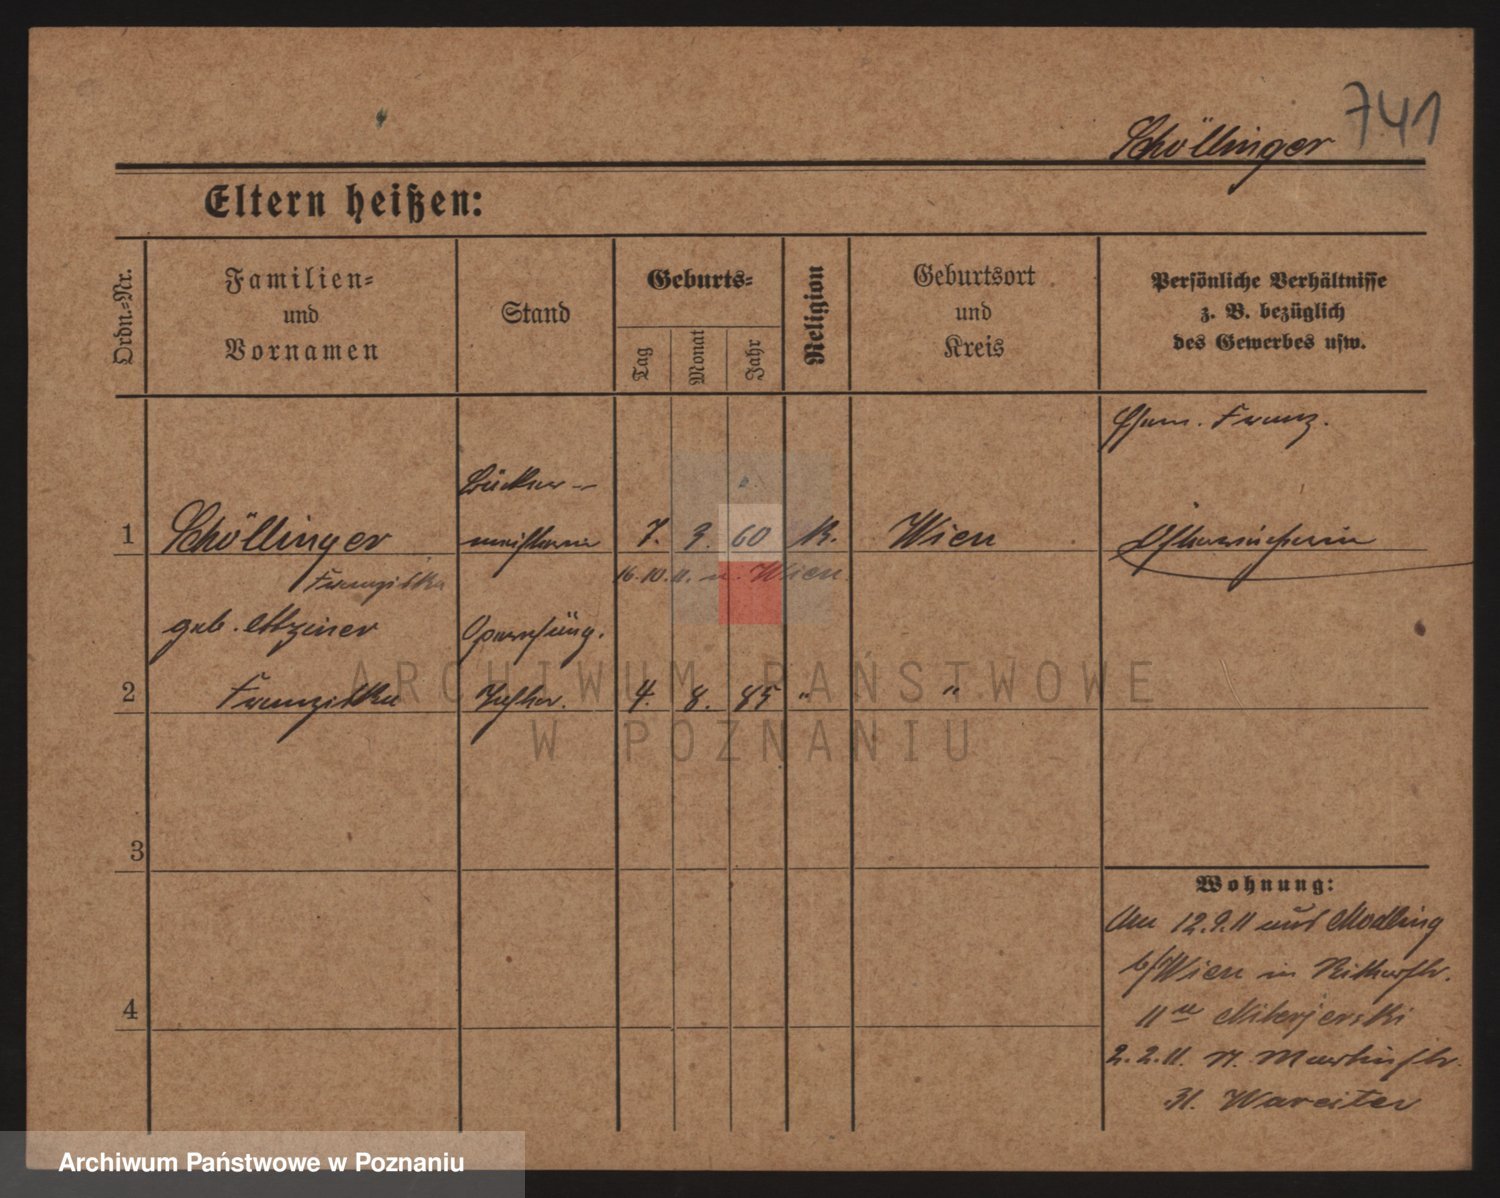 741
Schöllinger
Eltern heißen:
Ordn.-Nr.
Familien-
und
Vornamen
Stand
Geburts-
Tag
Monat
Jahr
Religion
Geburtsort
und
Kreis
Persönliche Verhältnisse
z. B. bezüglich
des Gewerbes usw.
Ehem. Franz.
Bäcker-
1 Schöllinger meisterin 7. 3. 60 K. Wien Österreicherin
Franziska 16.10.11 n. Wien
geb. Opernsäng.
2 Franziska Tochter. 4. 8. 85 " "
ARCHIWUM PAŃSTWOWE
W POZNANIU
3
4
Wohnung:
Am 12.9.11 aus Modling
b/Wien in Ritterstr.
11
2. 2. 11. n. Martinstr.
31. Wareiter
Archiwum Państwowe w Poznaniu